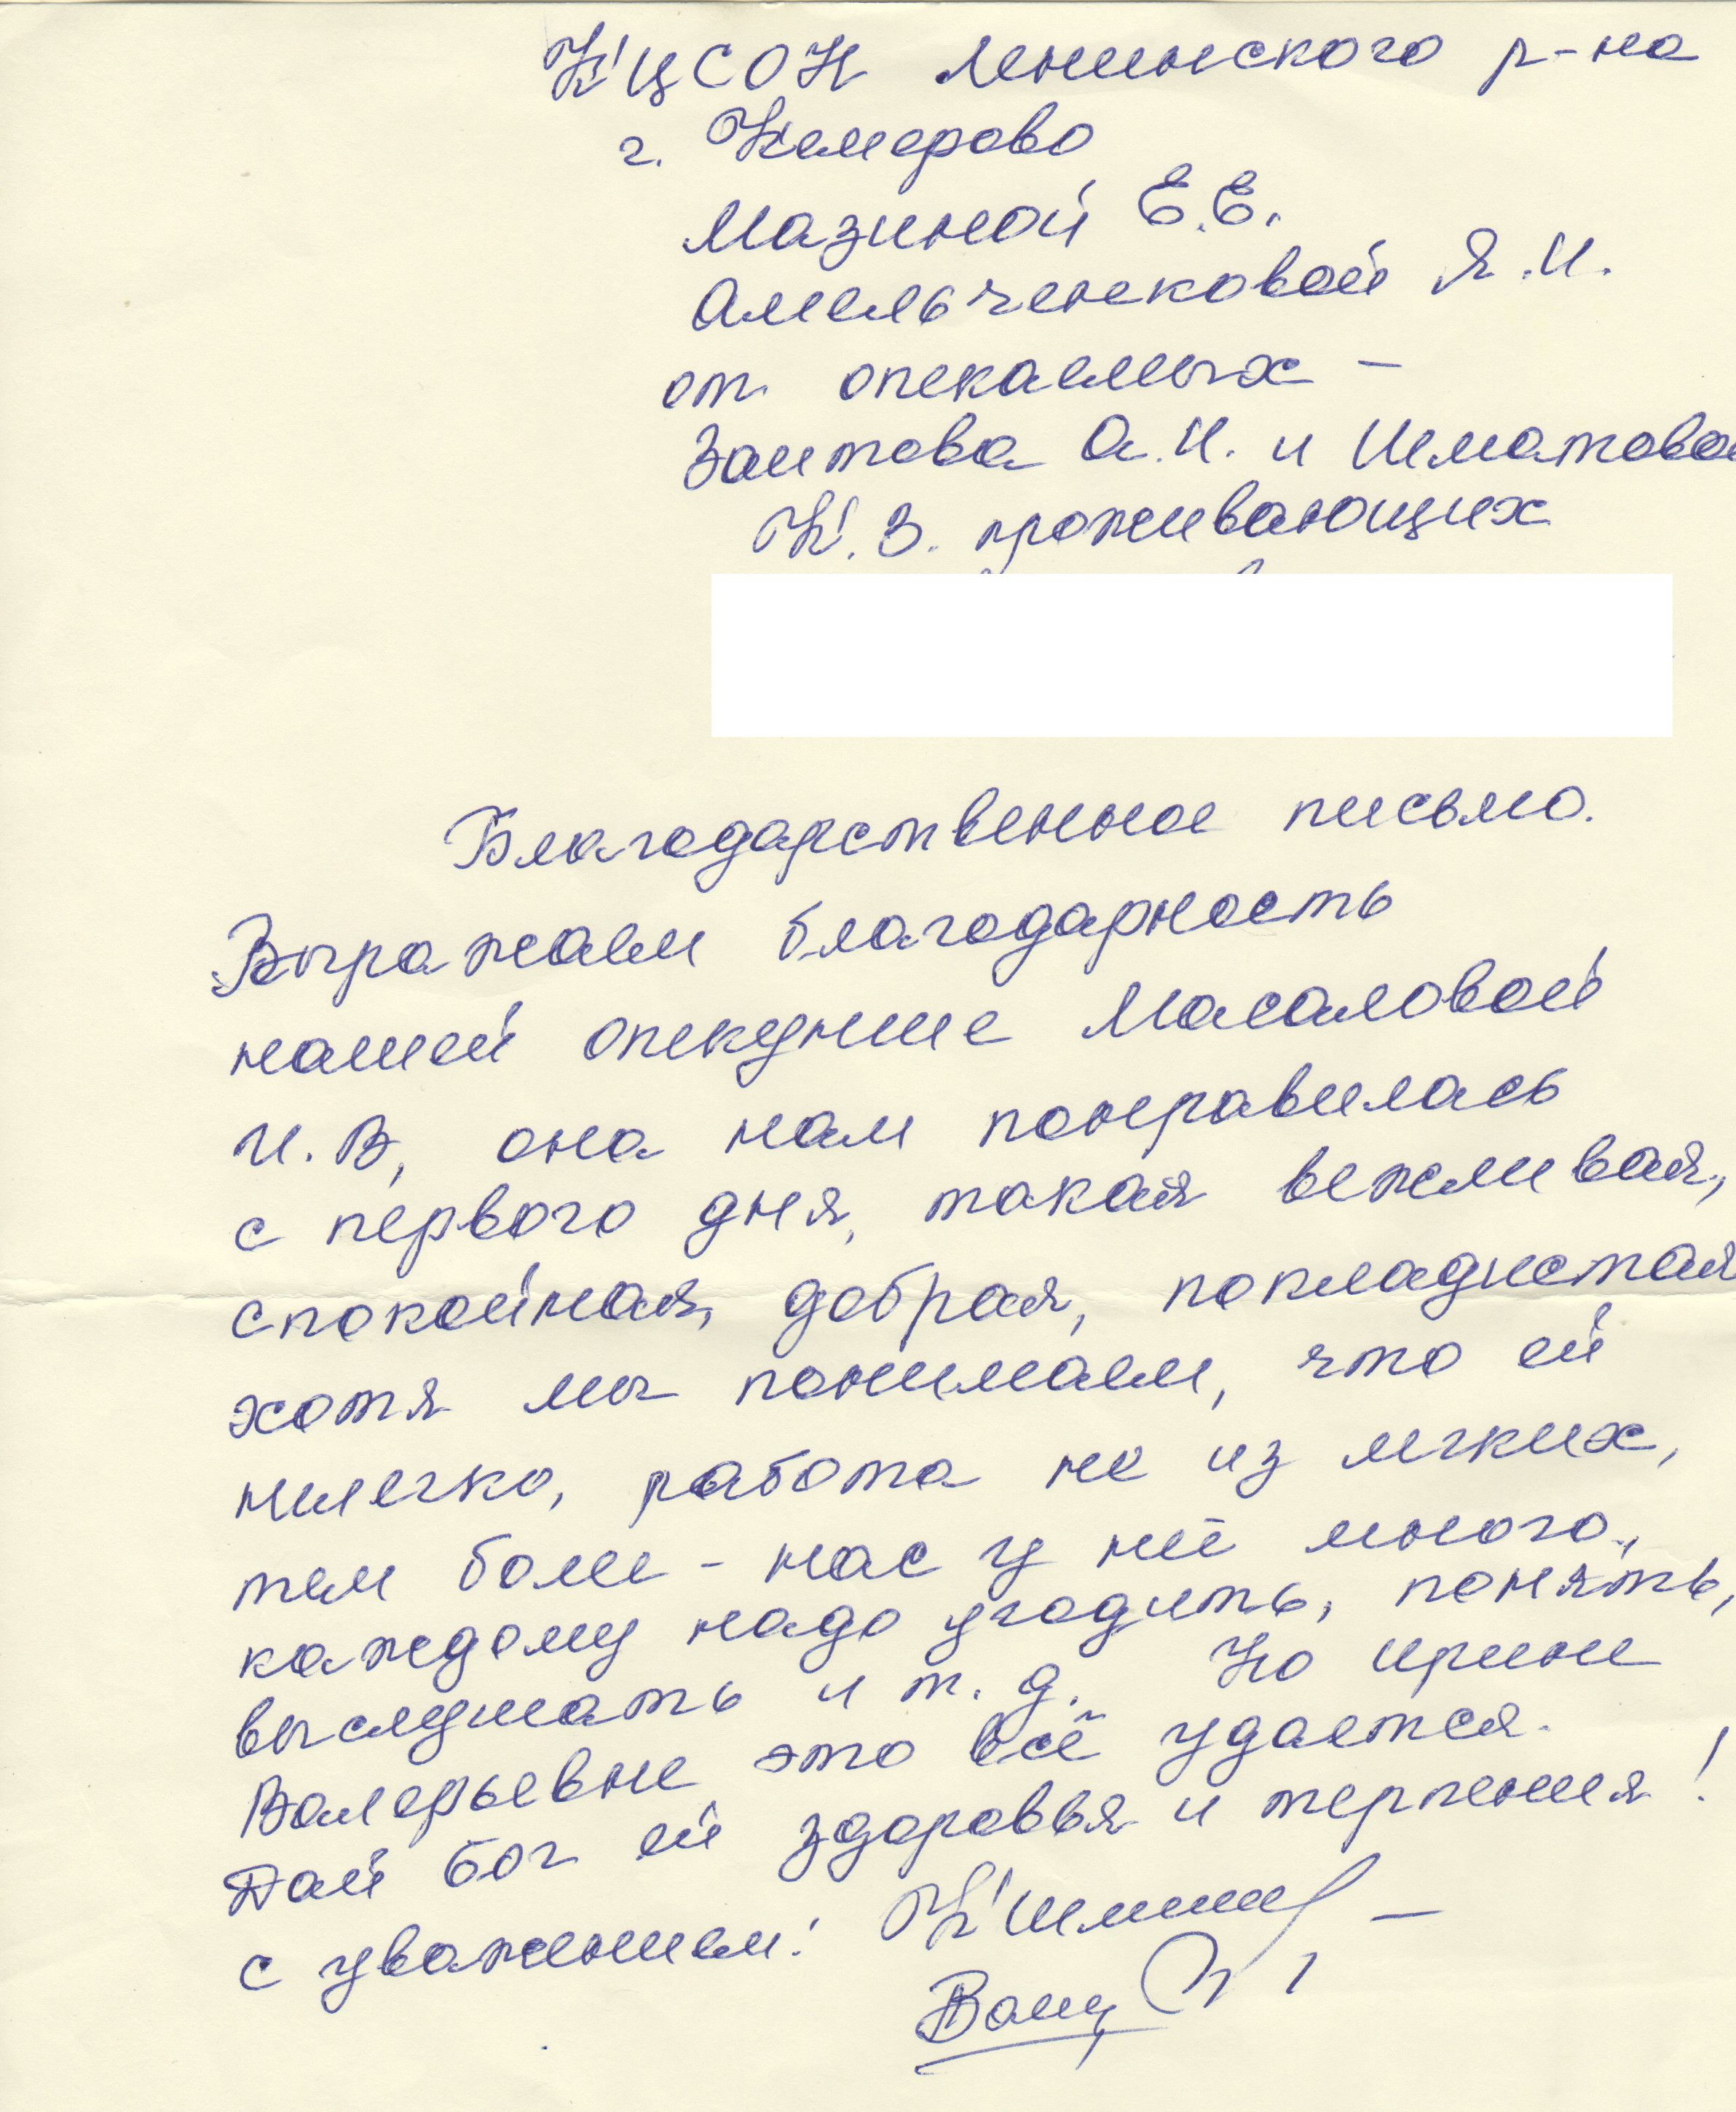 КЦСОН Ленинского р-на
г. Кемерово
Мазиной Е.Е.
Омельченковой Я.И.
от опекаемых –
Заитова А.И. и Шматовой
К.З. проживающих
Благодарственное письмо.
Выражаем благодарность
нашей опекунше Масаловой
И.В, она нам понравилась
с первого дня, такая вежливая,
спокойная, добрая, покладистая
хотя мы понимаем, что ей
нилегко, работа не из легких,
тем более - нас у неё много,
каждому надо угодить, понять,
выслушать и т.д. Но Ирине
Валерьевне это всё удается.
Дай бог ей здоровья и терпения!
с уважением: